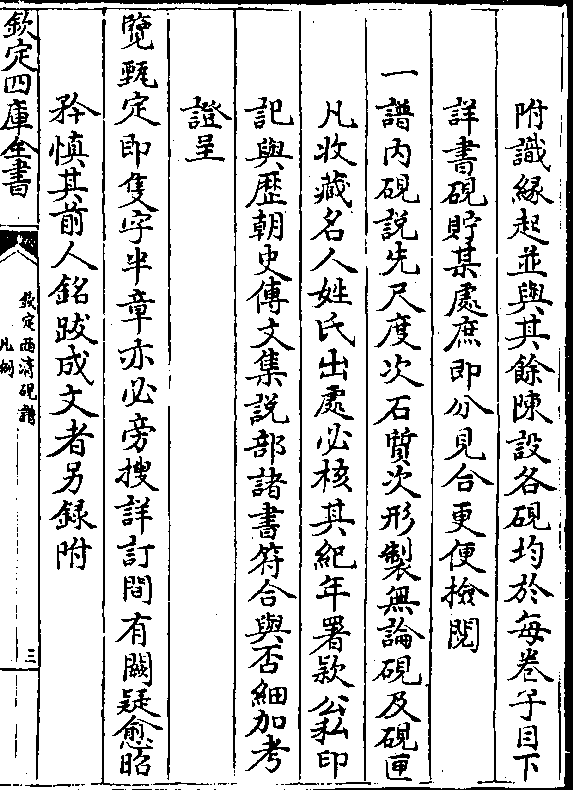 附識縁起並與其餘陳設各硯均於每卷子目下
詳書硯貯某處庶即分見合更便撿閱
一譜内硯説先尺度次石質次形製無論硯及硯匣
凡收藏名人姓氏出處必核其紀年署欵公私印
記與歴朝史傳文集説部諸書符合與否細加考
證呈
覽甄定即隻字半章亦必旁搜詳訂間有闕疑愈昭
矜慎其前人銘跋成文者另録附
欽定四庫全書
欽定西清硯譜
凡例
三